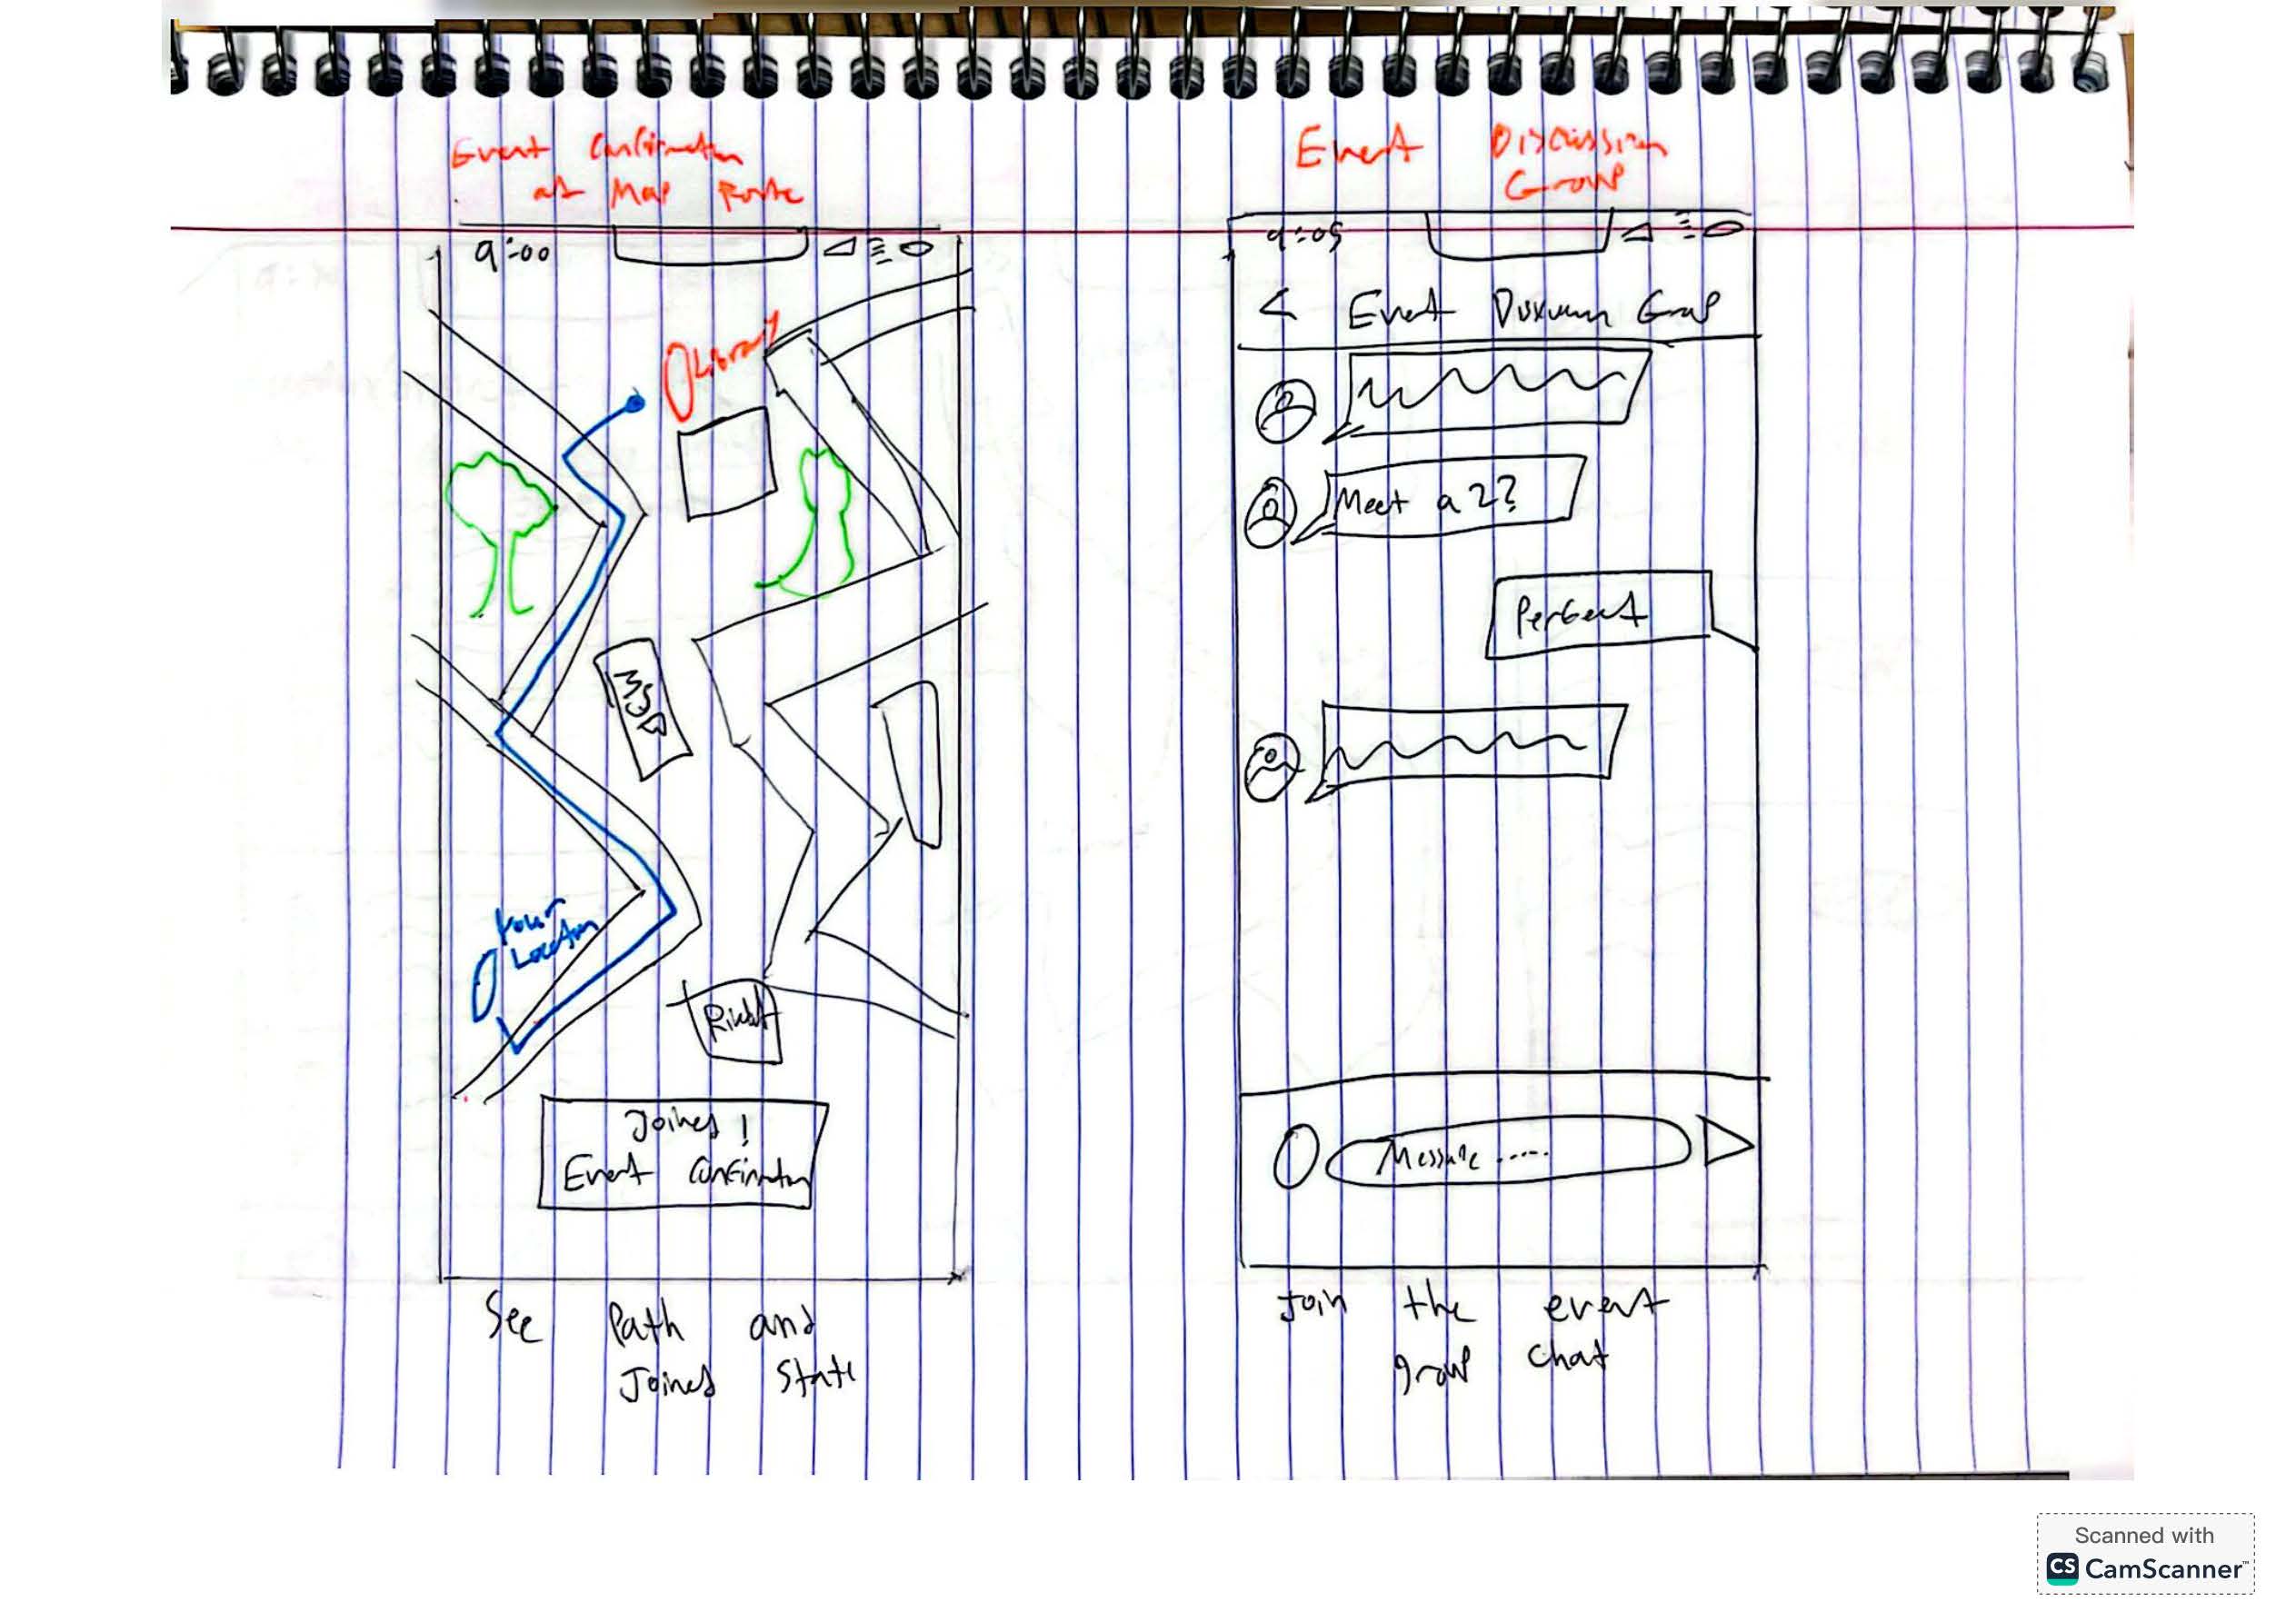 Event Confirmation
at Map Route
9:00
Library
MSB
Your
Location
Joined!
Event Confirmation
See Path and
Joined State
Event Discussion
Group
9:05
< Event Discussion Group
Meet a 2?
Perfect
Message .....
Join the event
group chat
Scanned with
CS CamScanner™